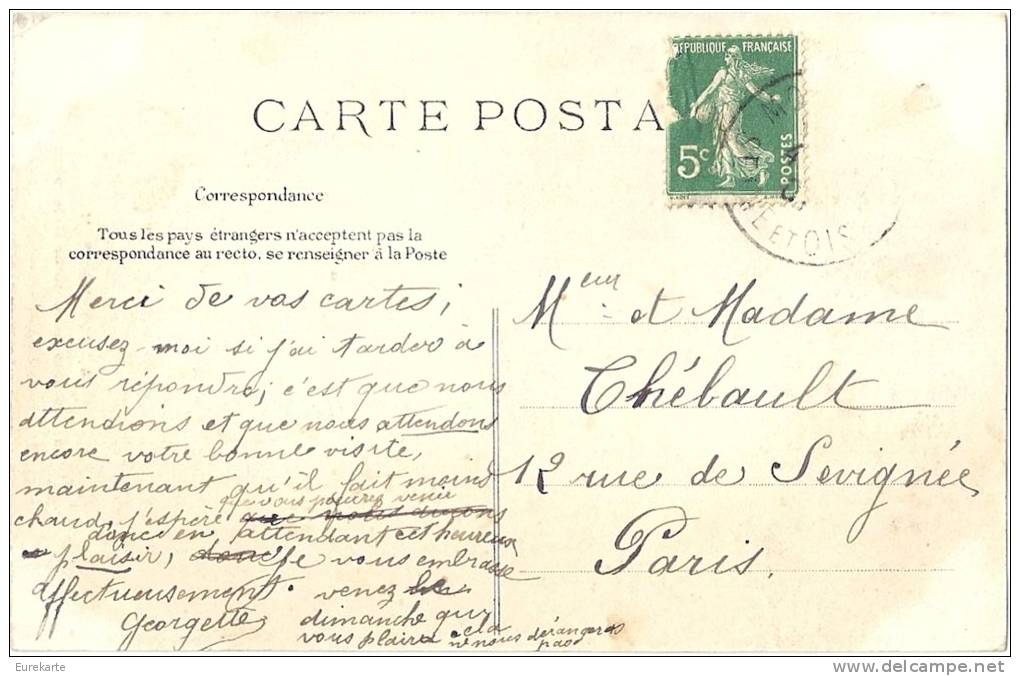 RÉPUBLIQUE FRANÇAISE
5c
POSTES
E ET OIS
CARTE POSTA
Correspondance
Tous les pays étrangers n'acceptent pas la
correspondance au recto, se renseigner à la Poste
Merci de vos cartes;
excusez-moi si j'ai tarder à
vous répondre; c'est que nous
attendions et que nous attendons
encore votre bonne visite,
maintenant qu'il fait moins
que vous pourrez venir
chaud, j'espère
donc en attendant cet heureux
plaisir, je vous embrasse
affectueusement. venez
Georgette dimanche qui
vous plaira cela
ne nous dérangera
pas
Meur et Madame
Thébault
12 rue de Sevignée
Paris.
Eurekarte
www.delcampe.net